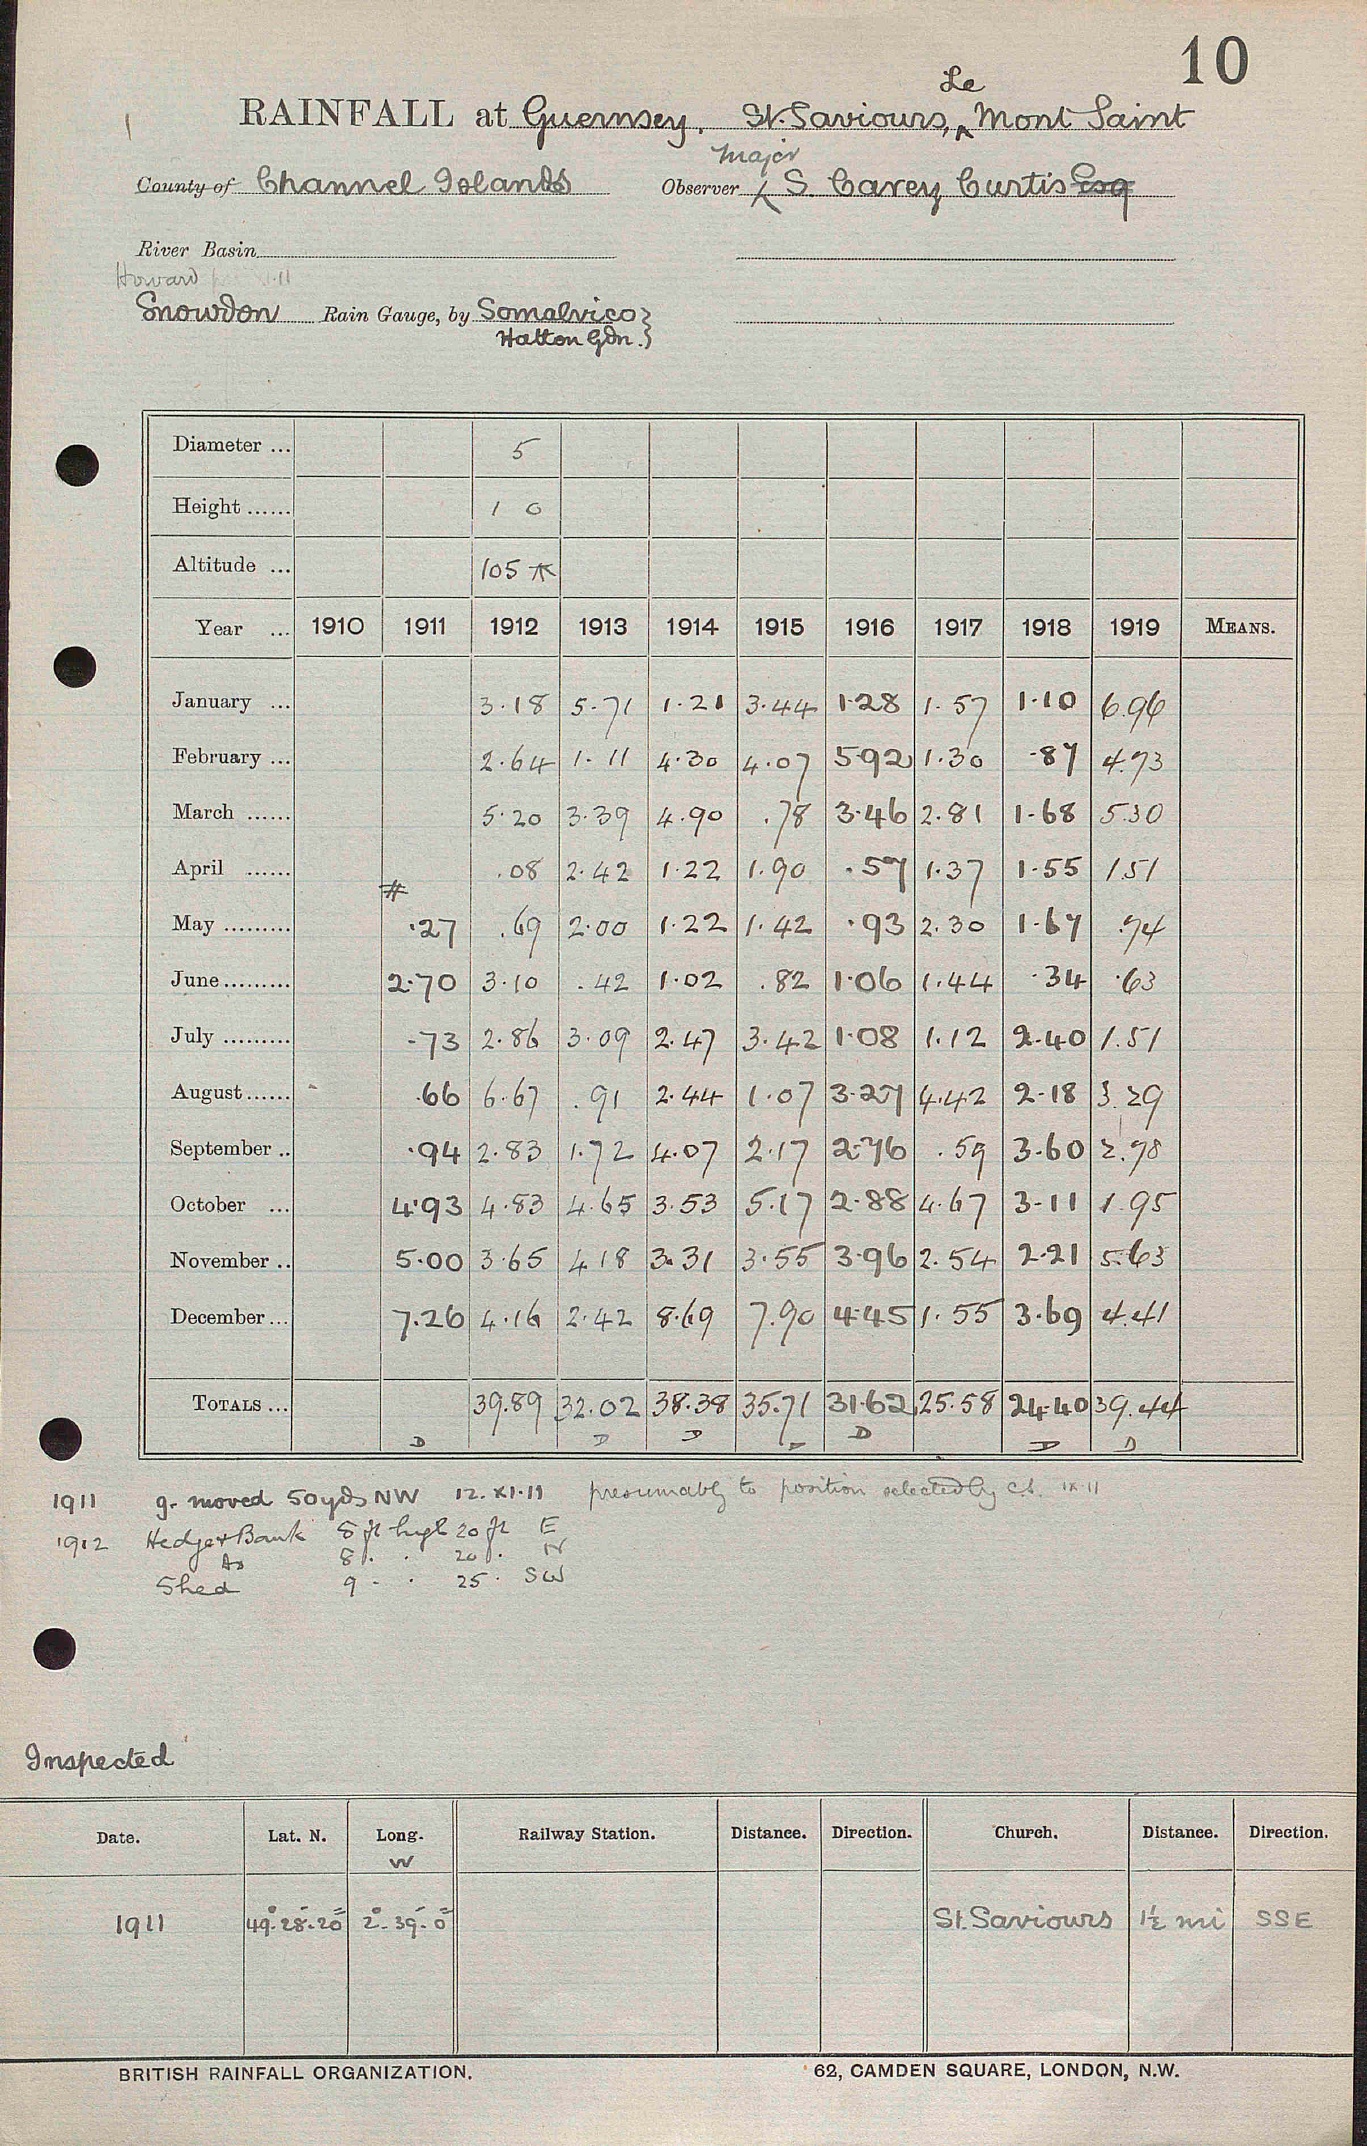 10
Le
RAINFALL at Guernsey, St. Saviours, ^ Mont Saint
Major
County of Channel Islands Observer ^ S. Carey Curtis Esq
River Basin
Howard
Snowdon Rain Gauge, by Somalvico }
Hatton Gdn. }
Diameter ... 5
Height ...... 1 0
Altitude ... 105 ⚹
Year ... 1910 1911 1912 1913 1914 1915 1916 1917 1918 1919 MEANS.
January ... 3.18 5.71 1.21 3.44 1.28 1.57 1.10 6.96
February ... 2.64 1.11 4.30 4.07 5.92 1.30 .87 4.73
March ...... 5.20 3.39 4.90 .78 3.46 2.81 1.68 5.30
April ...... .08 2.42 1.22 1.90 .57 1.37 1.55 1.51
#
May ......... .27 .69 2.00 1.22 1.42 .93 2.30 1.67 .74
June ......... 2.70 3.10 .42 1.02 .82 1.06 1.44 .34 .63
July ......... .73 2.86 3.09 2.47 3.42 1.08 1.12 2.40 1.51
August ...... .66 6.67 .91 2.44 1.07 3.27 4.42 2.18 3.29
September .. .94 2.83 1.72 4.07 2.17 2.76 .59 3.60 2.78
October ... 4.93 4.83 4.65 3.53 5.17 2.88 4.67 3.11 1.95
November .. 5.00 3.65 4.18 3.31 3.55 3.96 2.54 2.21 5.63
December ... 7.26 4.16 2.42 8.69 7.90 4.45 1.55 3.69 4.41
TOTALS ... 39.89 32.02 38.38 35.71 31.62 25.58 24.40 39.44
D D D D D D D
1911 g. moved 50 yds NW 12.XI.11 presumably to position selected by C.S. IX 11
1912 Hedge + Bank 5 ft high 20 ft E
Do 8 . . 20 . N
Shed 9 . . 25 . SW
Inspected
Date. Lat. N. Long. Railway Station. Distance. Direction. Church. Distance. Direction.
W
1911 49°.28'.20" 2°.39'.0" St. Saviours 1½ mi SSE
BRITISH RAINFALL ORGANIZATION. 62, CAMDEN SQUARE, LONDON, N.W.